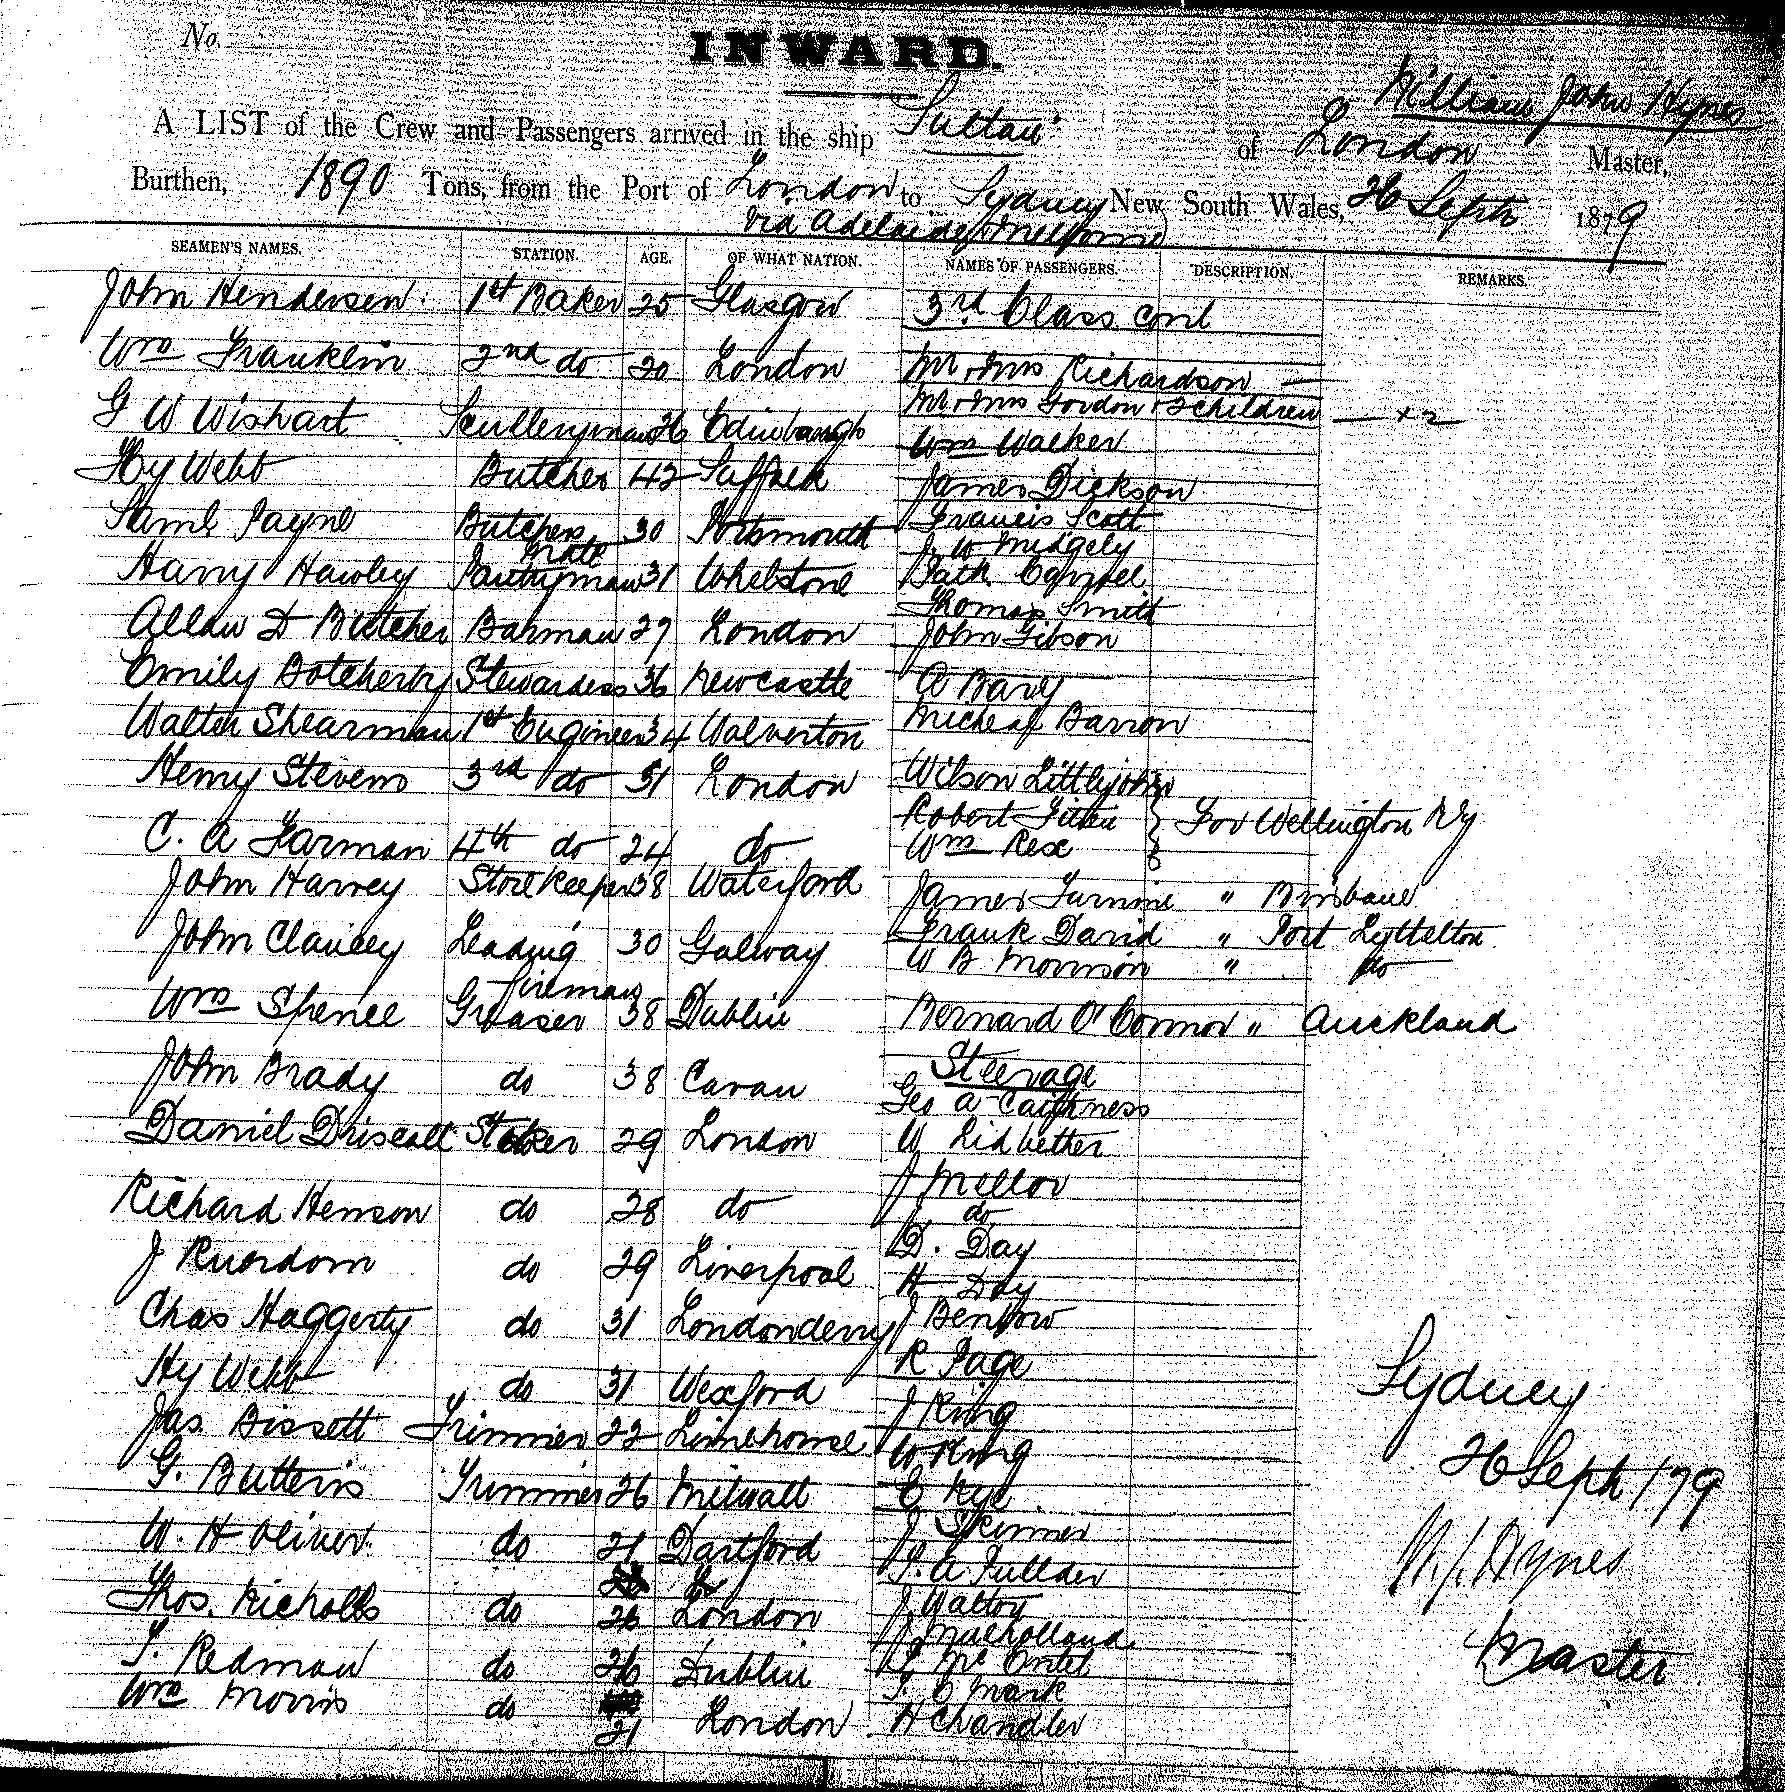 No.
INWARD.
A LIST of the Crew and Passengers arrived in the ship Sultan of London William John Hynes Master,
Burthen, 1890 Tons, from the Port of London to Sydney New South Wales, 26 Septr 1879
via Adelaide & Melbourne
SEAMEN'S NAMES. STATION. AGE. OF WHAT NATION. NAMES OF PASSENGERS. DESCRIPTION. REMARKS.
John Henderson 1st Baker 25 Glasgow 3rd Class cont
Wm Franklin 2nd do 20 London Mr & Mrs Richardson —
Mr & Mrs Gordon & 2 children — x 2
G W Wishart Sculleryman 26 Edinburgh Wm Walker
Hy Webb Butcher 42 Suffolk James Dickson
Saml Payne Butchers Mate 30 Portsmouth Francis Scott
J. W Midgely
Harry Hawley Pantryman 31 Whelstone Path
Thomas Smith
Allan D Butcher Barman 27 London John Gibson
Emily Botcherby Stewardess 36 Newcastle A Bary
Walter Shearman 1st Engineer 34 Wolverton Micheal Barron
Henry Stevens 3rd do 31 London Wilson Littlejohn
Robert For Wellington NZ
C. A Farman 4th do 24 do Wm Rex
John Harvey Storekeeper 38 Waterford James " Brisbane
John Clancey Leading fireman 30 Galway Frank David " Port Lyttelton
W B Morrison " do
Wm Spence Greaser 38 Dublin Bernard O'Connor " Auckland
Steerage
John Brady do 38 Cavan Geo A Caithness
Daniel Driscoll Stoker 29 London W Lidbetter
J Mellor
Richard Henson do 28 do J do
D. Day
J Ruerdom do 29 Liverpool H Day
Chas Haggerty do 31 Londonderry J Benbow
R Page
Hy Webb do 31 Wexford J King
Jas. Bissett Trimmer 22 Limehouse W. King
G. Butteris Trimmer 26 Milwall C Rye
J Skinner
W. H Oliver do 21 Dartford
J Walton
Thos. Nicholls do 26 London J Mulholland
T. Redman do 26 Dublin
T. C Mark
Wm Morris do 21 London H Chandler
Sydney
26 Septr / 79
W. J. Hynes
Master